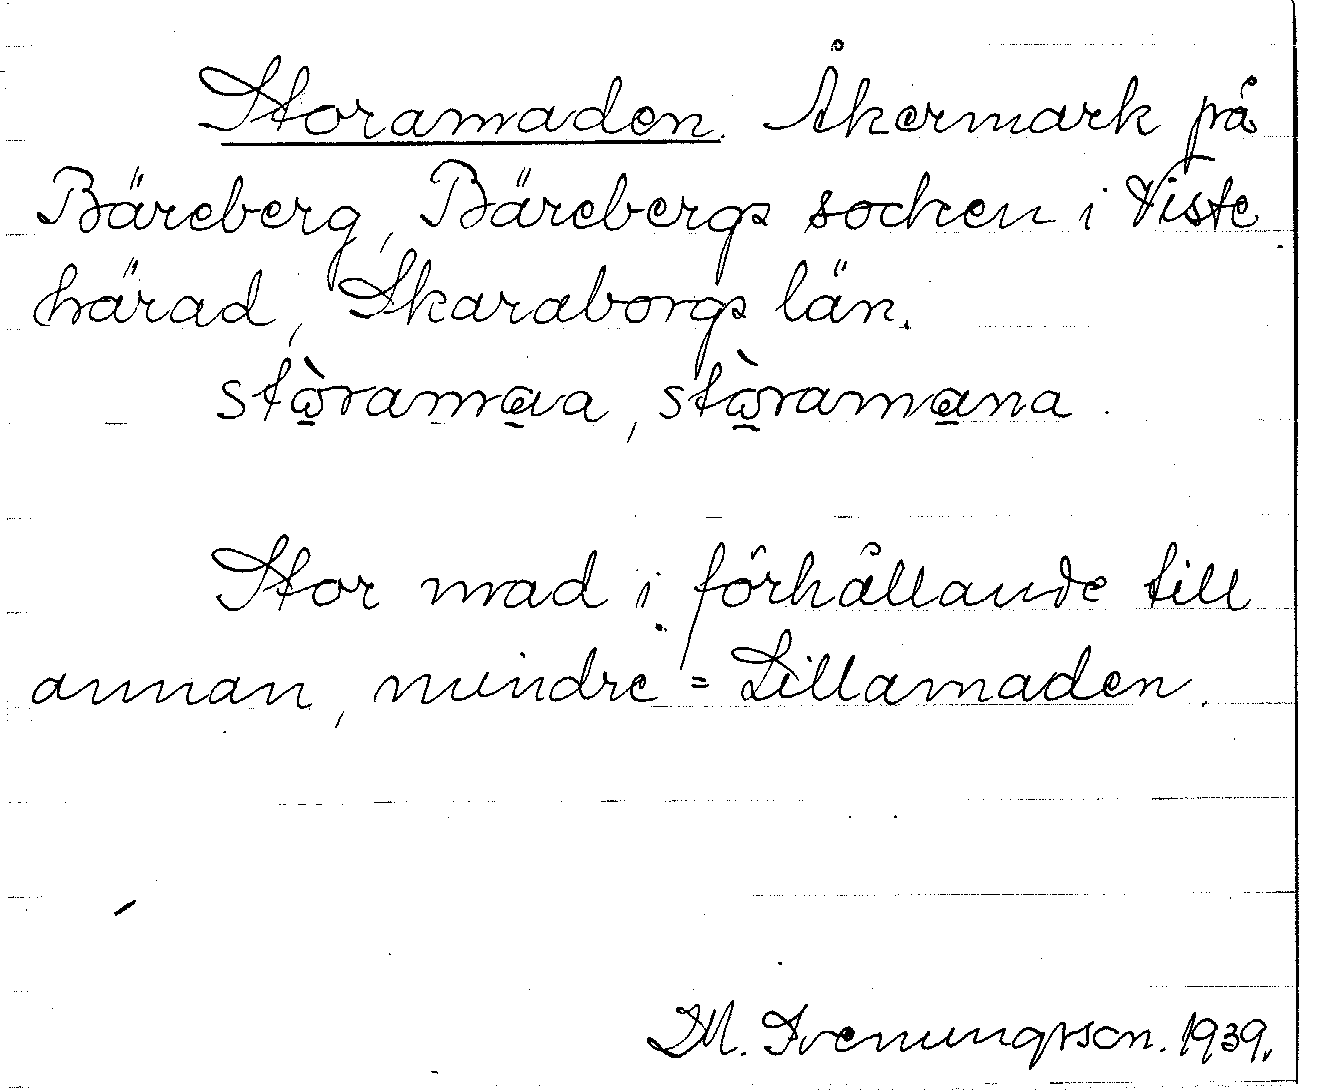 Storamaden. Åkermark på
Bäreberg, Bärebergs socken i Viste
härad, Skaraborgs län.
stò̱rama̱a, stò̱rama̱na.
Stor mad i förhållande till
annan, mindre = Lillamaden.
M. Svenungsson. 1939.